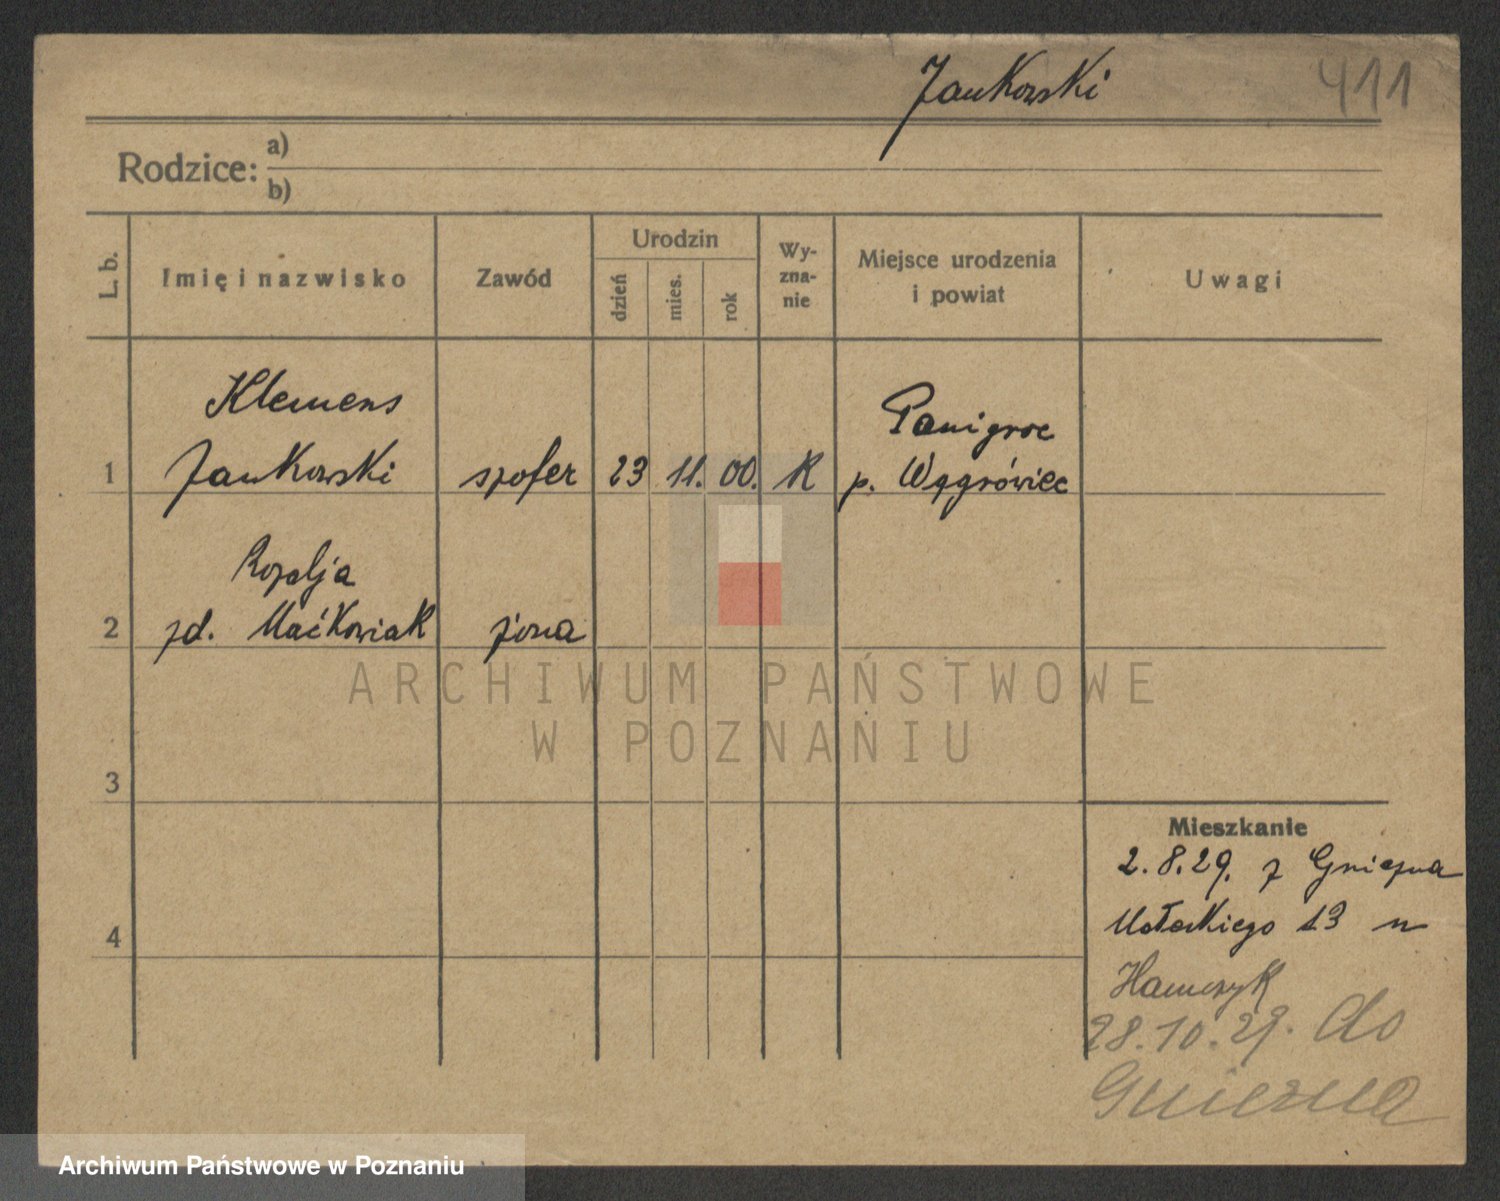 Jankowski 411
Rodzice: a)
b)
L. b.
Imię i nazwisko
Zawód
Urodzin
dzień
mies.
rok
Wy-
zna-
nie
Miejsce urodzenia
i powiat
Uwagi
Klemens
1 Jankowski szofer 23 11. 00. K
Panigroc
p. Wągrówiec
Rozalja
2 zd. Maćkowiak żona
ARCHIWUM PAŃSTWOWE
W POZNANIU
3
Mieszkanie
2.8.29. z Gniezna
13 n
4
28.10.29. do
Gniezna
Archiwum Państwowe w Poznaniu